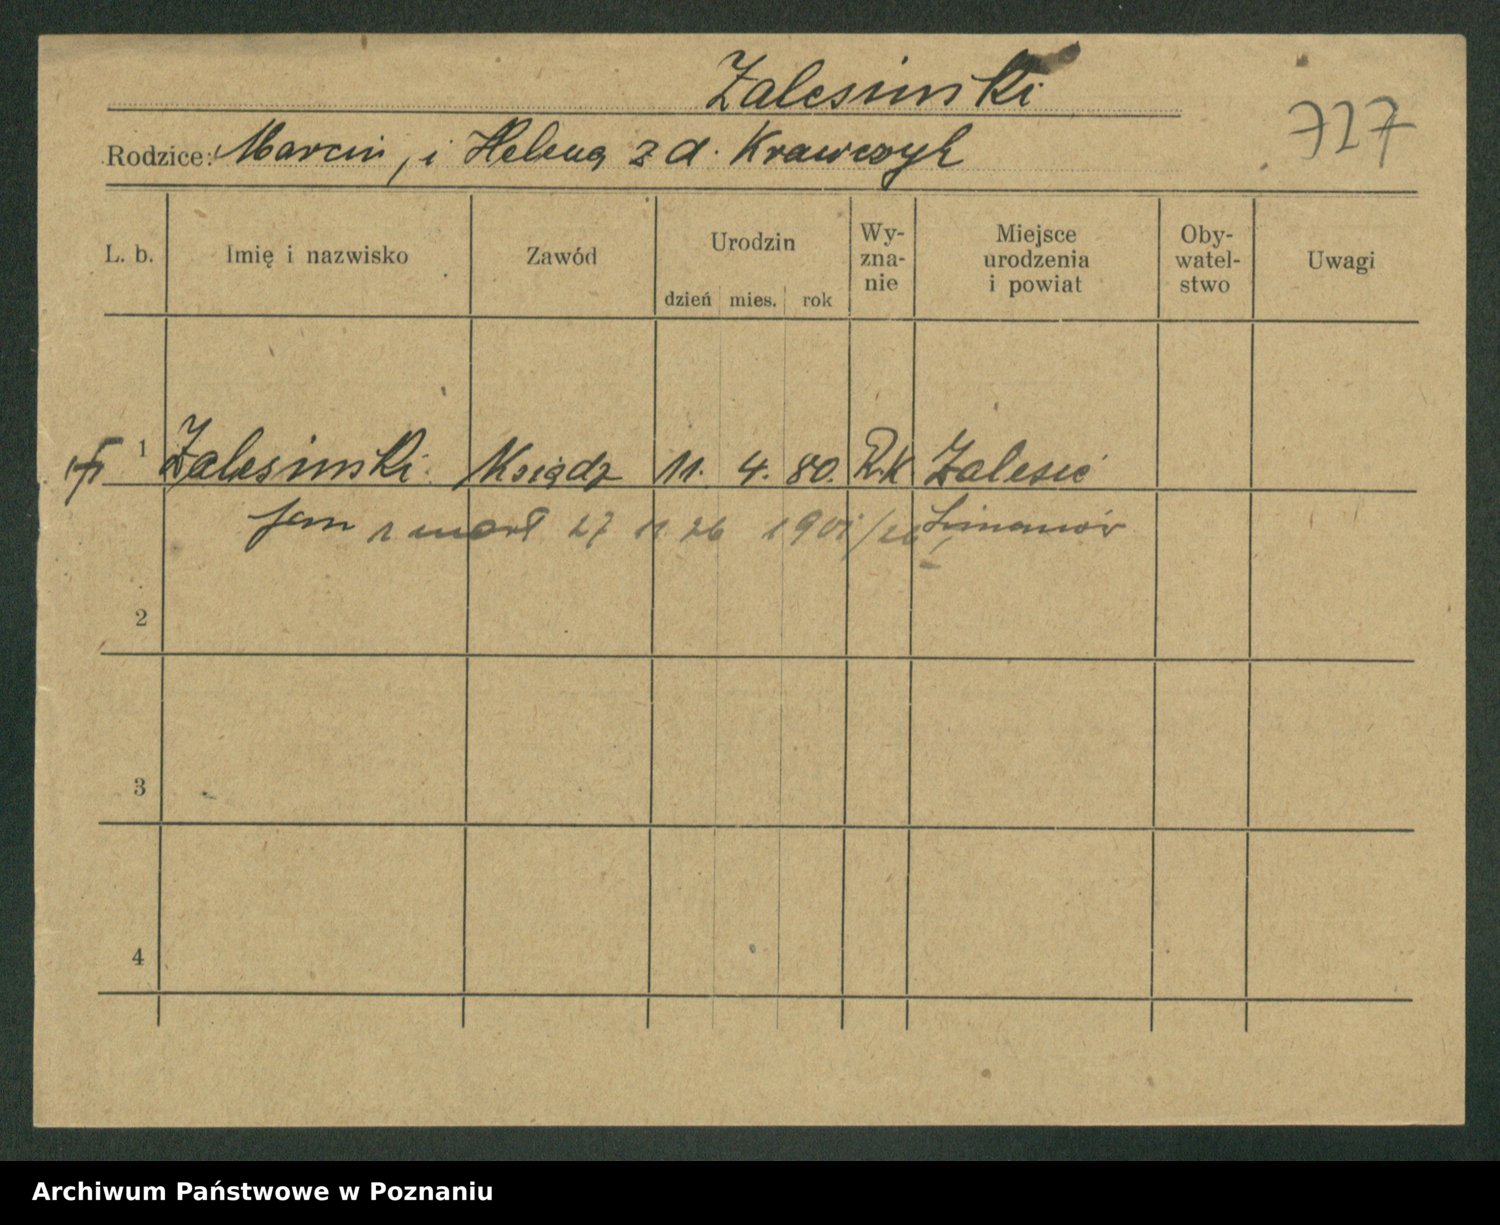 Zalesinski
727
Rodzice: Marcin, i Helena z d. Krawczyk
L. b.
Imię i nazwisko
Zawód
Urodzin
dzień mies. rok
Wy-
zna-
nie
Miejsce
urodzenia
i powiat
Oby-
watel-
stwo
Uwagi
1 Zalesinski Ksiądz 11. 4. 80. R.K Zalesie
Jan zmarł 27 11 26 Limanów
2
3
4
Archiwum Państwowe w Poznaniu